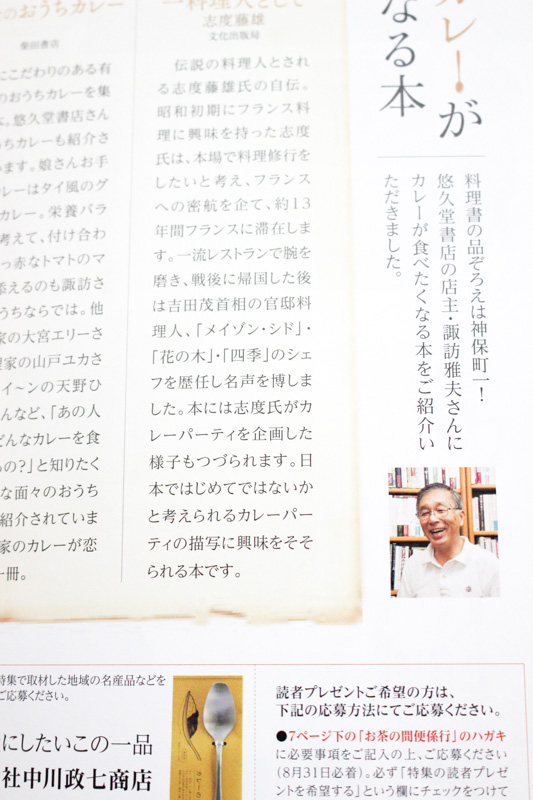 カレーが
なる本
料理書の品ぞろえは神保町一！
悠久堂書店の店主・諏訪雅夫さんに
カレーが食べたくなる本をご紹介い
ただきました。
一料理人として
志度藤雄
文化出版局
伝説の料理人とされ
る志度藤雄氏の自伝。
昭和初期にフランス料
理に興味を持った志度
氏は、本場で料理修行を
したいと考え、フランス
への密航を企て、約13
年間フランスに滞在しま
す。一流レストランで腕を
磨き、戦後に帰国した後
は吉田茂首相の官邸料
理人、「メイゾン・シド」・
「花の木」・「四季」のシェ
フを歴任し名声を博しま
した。本には志度氏がカ
レーパーティを企画した
様子もつづられます。日
本ではじめてではないか
と考えられるカレーパー
ティの描写に興味をそそ
られる本です。
のおうちカレー
柴田書店
にこだわりのある有
のおうちカレーを集
。悠久堂書店さん
うちカレーも紹介さ
います。娘さんお手
レーはタイ風のグ
カレー。栄養バラ
考えて、付け合わ
っ赤なトマトのマ
添えるのも諏訪さ
うちならでは。他
家の大宮エリーさ
理家の山戸ユカさ
イ〜ンの天野ひ
んなど、「あの人
どんなカレーを食
るの？」と知りたく
な面々のおうち
紹介されていま
家のカレーが恋
一冊。
特集で取材した地域の名産品などを
ご応募ください。
にしたいこの一品
社中川政七商店
読者プレゼントご希望の方は、
下記の応募方法にてご応募ください。
●7ページ下の「お茶の間便係行」のハガキ
に必要事項をご記入の上、ご応募ください
（8月31日必着）。必ず「特集の読者プレゼ
ントを希望する」という欄にチェックをつけて